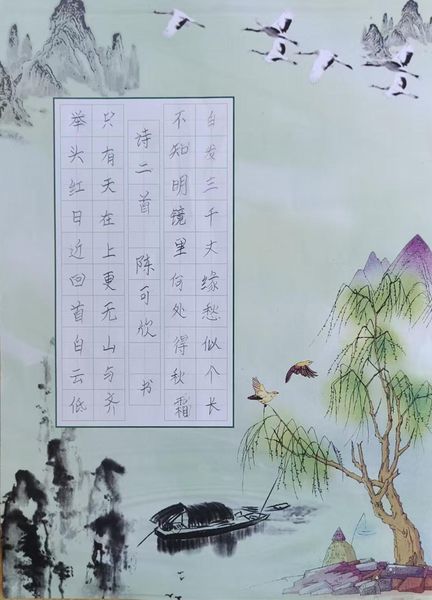 白发三千丈缘愁似个长
不知明镜里何处得秋霜
诗二首 陈可欣 书
只有天在上更无山与齐
举头红日近回首白云低